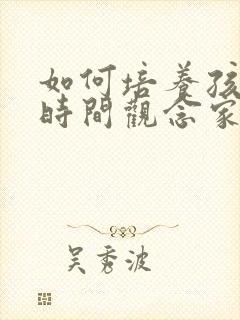 如何培養孩
時間觀念家
吳秀波